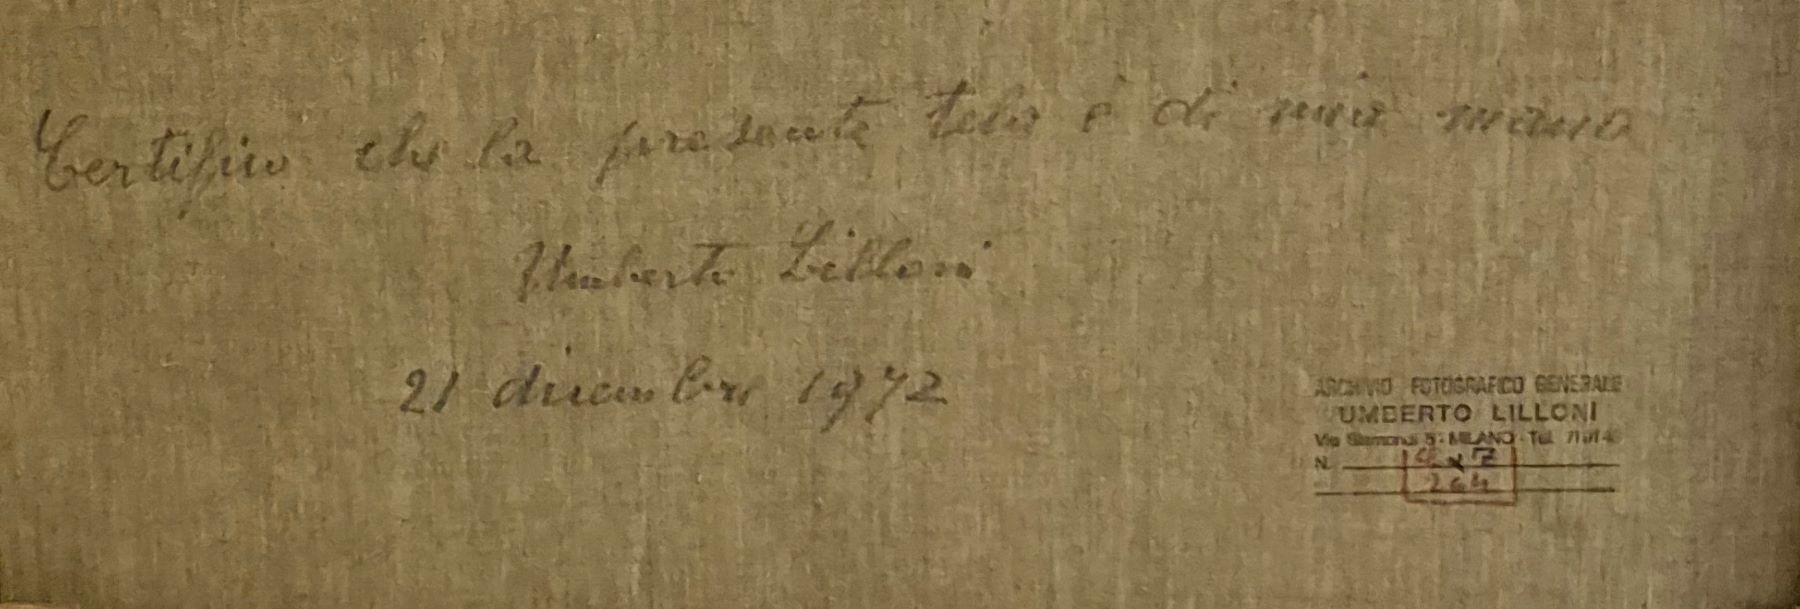 Certifico che la presente tela è di mia mano
Umberto Lilloni
21 dicembre 1972
ARCHIVIO FOTOGRAFICO GENERALE
UMBERTO LILLONI
Via 5 - MILANO - Tel.
N.
264